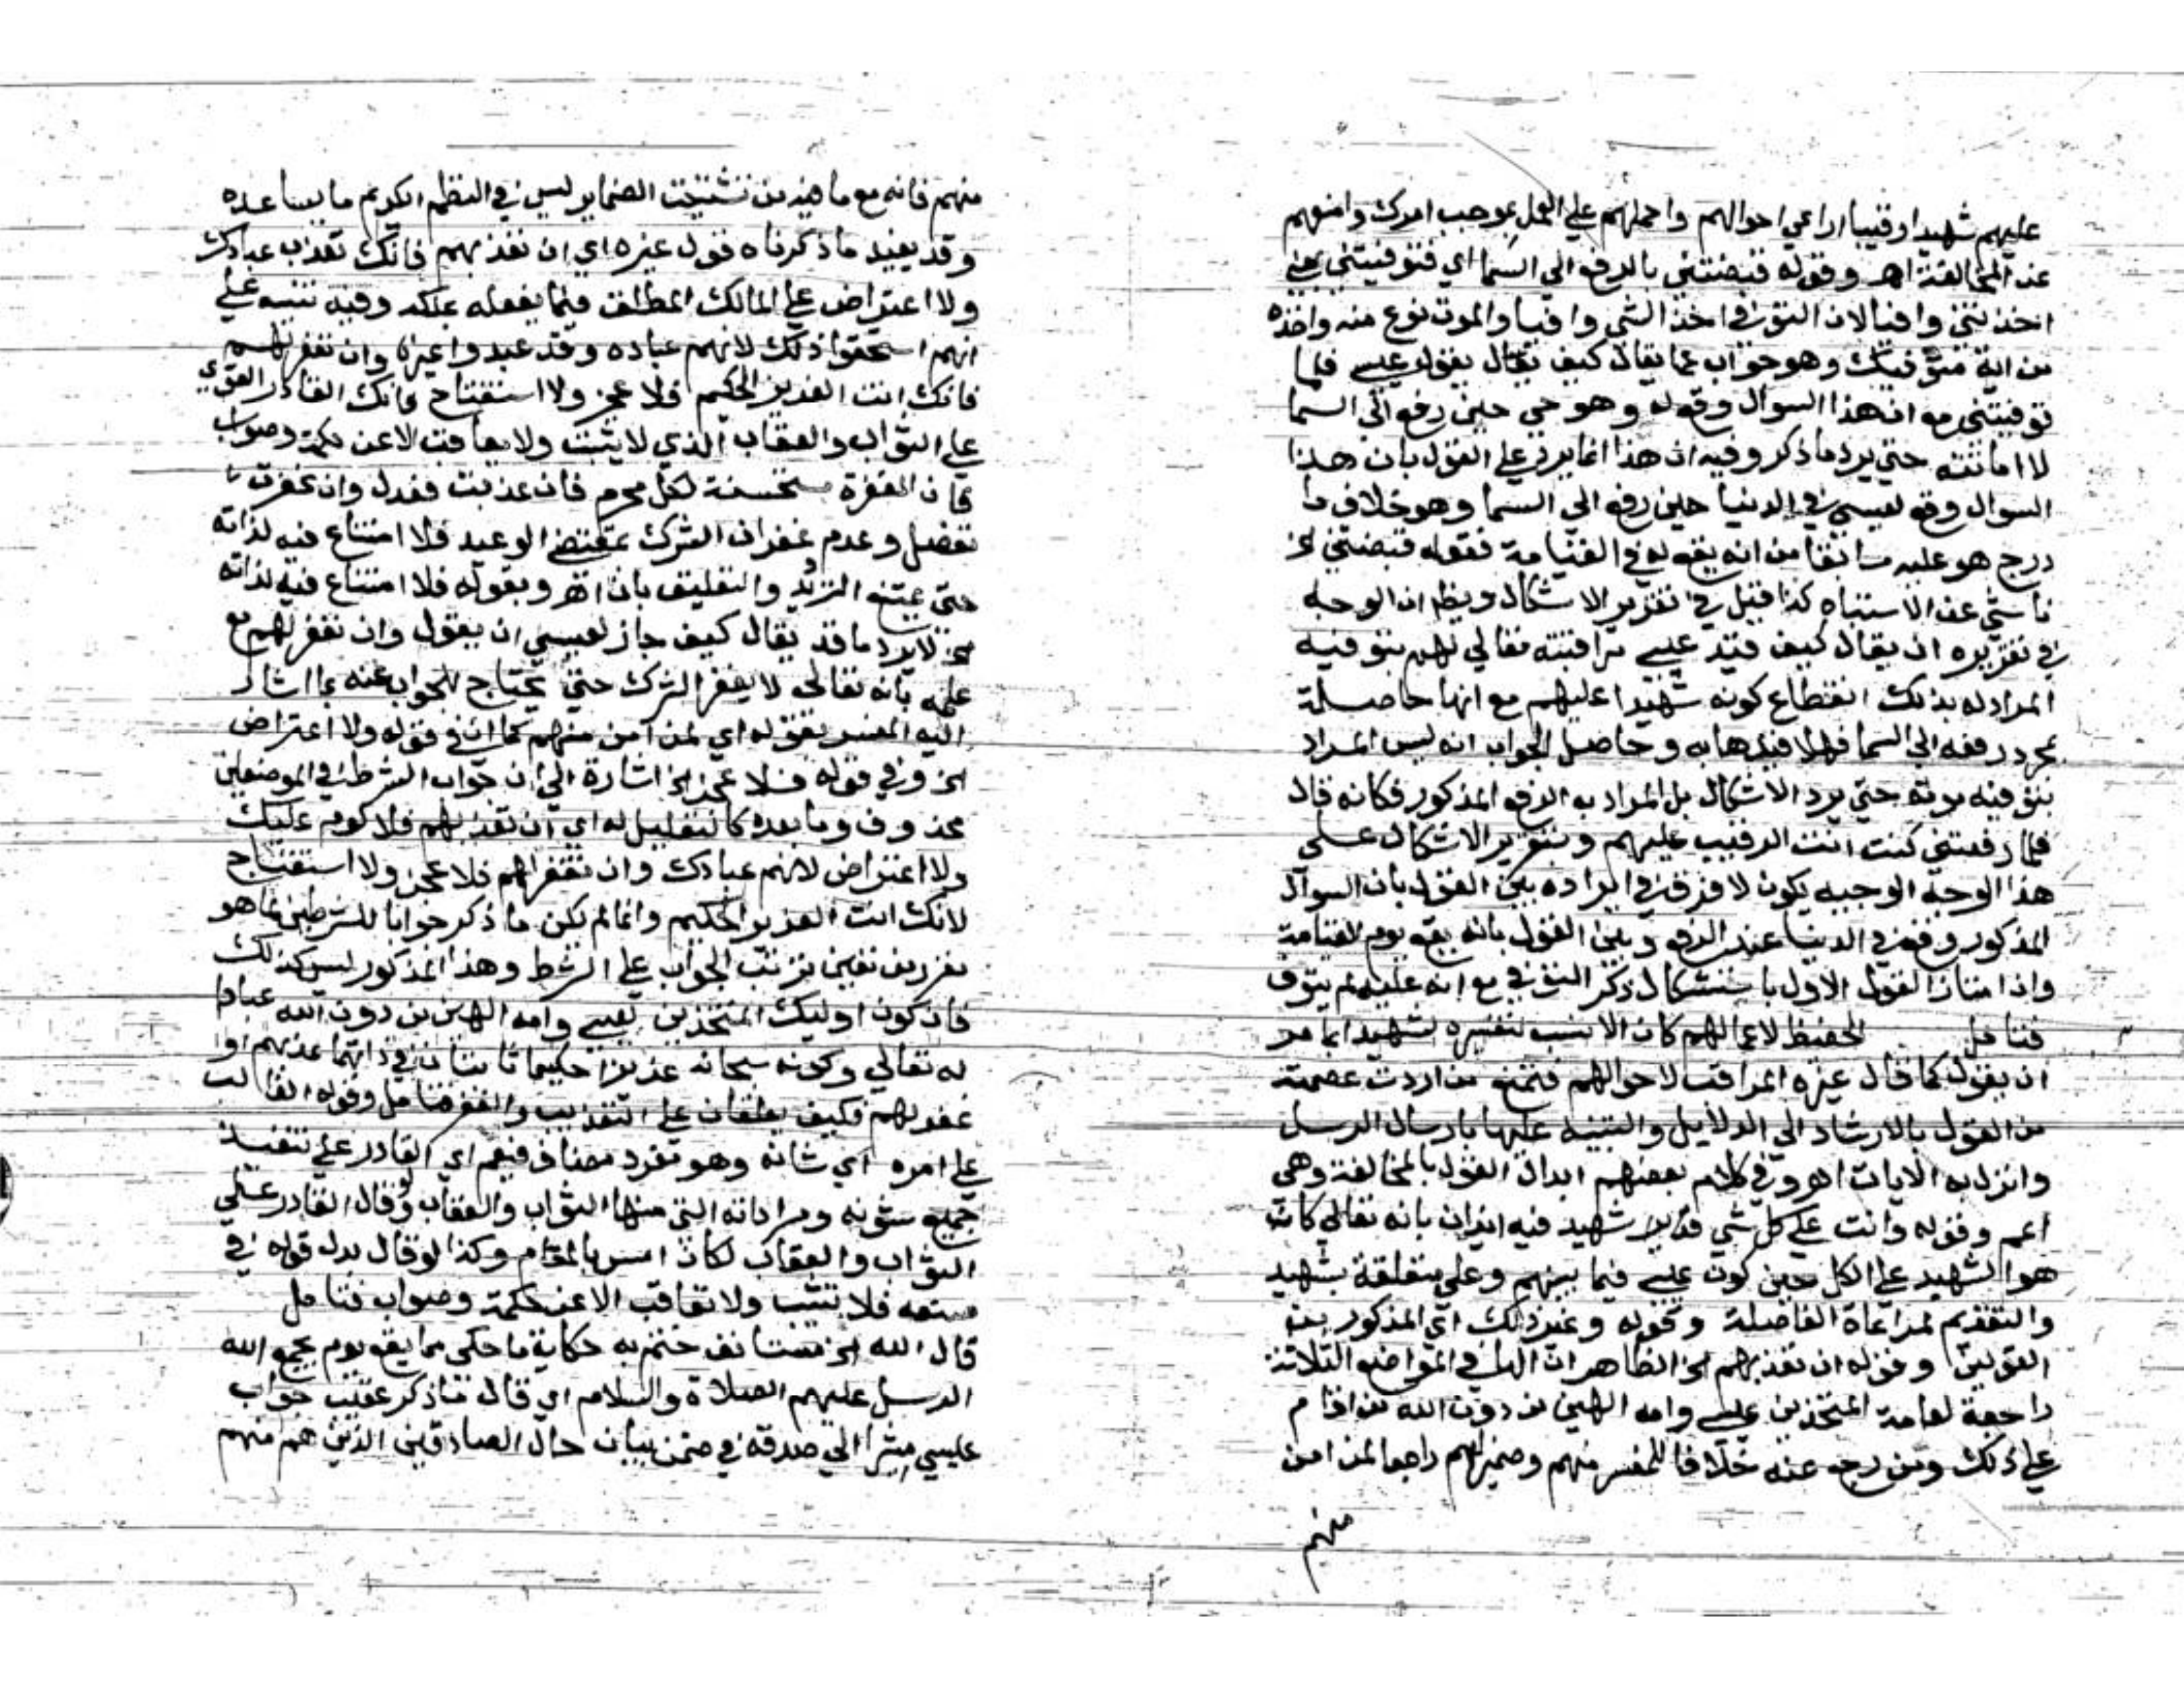 عليهم شهيدا رقيبا اراعي احوالهم واحملهم علي العمل بموجب امرك وامنعهم
عن المخالفة اهـ وقوله قبضتني بالرفع الي السما اي فتوفيتني يعني
اخذتني وافيا لان التوفي اخذ الشي وافيا والموت نوع منه واخذه
من اية متوفيك وهو جواب عما يقال كيف يقال يقول عيسي فلما
توفيتني مع ان هذا السوال وقع له وهو حي حين رفع الي السما
لا اماتته حتي يرد ما ذكر وفيه ان هذا انما يرد علي القول بان هذا
السوال وقع لعيسي في الدنيا حين رفع الي السما وهو خلاف ما
درج هو عليه سابقا من انه يقع له في القيامة فقوله قبضتني الخ
ناشي عن الاشتباه كذا قيل في تقرير الاشكال ويظهر ان الوجه
في تقريره ان يقال كيف قيد عيسي مراقبته تعالي لهم بتوفيه
المراد له بذلك انقطاع كونه شهيدا عليهم مع انها حاصلة
بمجرد رفعه الي السما فهلا قيدها به وحاصل الجواب انه ليس المراد
بتوفيه موته حتي يرد الاشكال بل المراد به الرفع المذكور فكانه قال
فلما رفعتني كنت انت الرقيب عليهم وبتقرير الاشكال علي
هذا الوجه الوجيه يكون لا فرق في ايراده بين القول بان السوال
المذكور وقع في الدنيا عند الرفع وبين القول بانه يقع يوم القيامة
وان امتاز القول الاول باستشكال ذكر التوفي مع انه عليه لم يتوف
فتامل الحفيظ لاعمالهم كان الانسب لتفسيره شهيدا بما مر
ان يقول كما قال غيره المراقب لاحوالهم فتمنع من اردت عصمته
من القول بالارشاد الي الدلايل والتنبيه عليها بارسال الرسل
وانزال الايات اهـ وفي كلام بعضهم ابدال القول بالمخالفة وهي
اعم وقوله وانت علي كل شي شهيد فيه ايذان بانه تعالي كان
هو الشهيد علي الكل حين كون عيسي فيما بينهم وعلي متعلقة بشهيد
والتقديم لمراعاة الفاصلة وقوله وغير ذلك اي المذكور من
القولين وقوله ان تعذبهم الخ الظاهر ان الها في المواضع الثلاثة
راجعة لعامة المتخذين عيسي وامه الهين من دون الله من اقام
علي ذلك ومن رجع عنه خلافا للمفسر منهم وضمير لهم راجعا لمن امن
منهم
منهم فانه مع ما فيه من تشتيت الضماير ليس في النظم الكريم ما يساعده
وقد يفيد ما ذكرناه قول غيره اي ان تعذبهم فانك تعذب عبادك
ولا اعتراض علي المالك المطلق فيما يفعله بملكه وفيه تنبيه علي
انهم استحقوا ذلك لانهم عباده وقد عبدوا غيره وان تغفر لهم
فانك انت العزيز الحكيم فلا عجز ولا استقباح فانك القادر القوي
علي الثواب والعقاب الذي لا يثيب ولا يعاقب الا عن حكمة وصواب
فان المغفرة مستحسنة لكل مجرم فان عذبت فعدل وان غفرت
تفضل وعدم غفران الشرك بمقتضي الوعيد فلا امتناع فيه لذاته
حتي يمتنع الترديد والتعليق بان اهـ وبقوله فلا امتناع فيه لذاته
الخ لا يرد ما قد يقال كيف جاز لعيسي ان يقول وان تغفر لهم مع
علمه بانه تعالي لا يغفر الشرك حتي يحتاج للجواب عنه بما اشار
اليه المفسر بقوله اي لمن آمن منهم كما ان في قوله ولا اعتراض
الخ وفي قوله فلا عجز الخ اشارة الي ان جواب الشرط في الموضعين
محذوف وما بعده كالتعليل له اي ان تعذبهم فلا لوم عليك
ولا اعتراض لانهم عبادك وان تغفر لهم فلا عجز ولا استقباح
لانك انت العزيز الحكيم وانما لم يكن ما ذكر جوابا للشرطين لما هو
مقرر من تعين ترتب الجواب علي الشرط وهذا المذكور ليس كذلك
فان كون اوليك المتخذين عيسي وامه الهين من دون الله عبادا
له تعالي وكونه سبحانه عزيزا حكيما ثابتان في ذاتهما عذبهم او
غفر لهم فكيف يعلقان علي التعذيب والغفر فتامل وقوله الغالب
علي امره اي شانه وهو مفرد مضاف فيعم اي القادر علي تنفيذ
جميع شؤنه ومراداته التي منها الثواب والعقاب ولو قال القادر علي
الثواب والعقاب لكان امس بالمقام وكذا لو قال بدل قوله في
صنعه فلا تثيب ولا تعاقب الا عن حكمة وصواب فتامل
قال الله الخ مستانف ختم به حكاية ما حكي مما يقع يوم يجمع الله
الرسل عليهم الصلاة والسلام اي قال ما ذكر عقب جواب
عيسي مشيرا الي صدقه في ضمن بيان حال الصادقين الذين هم منهم